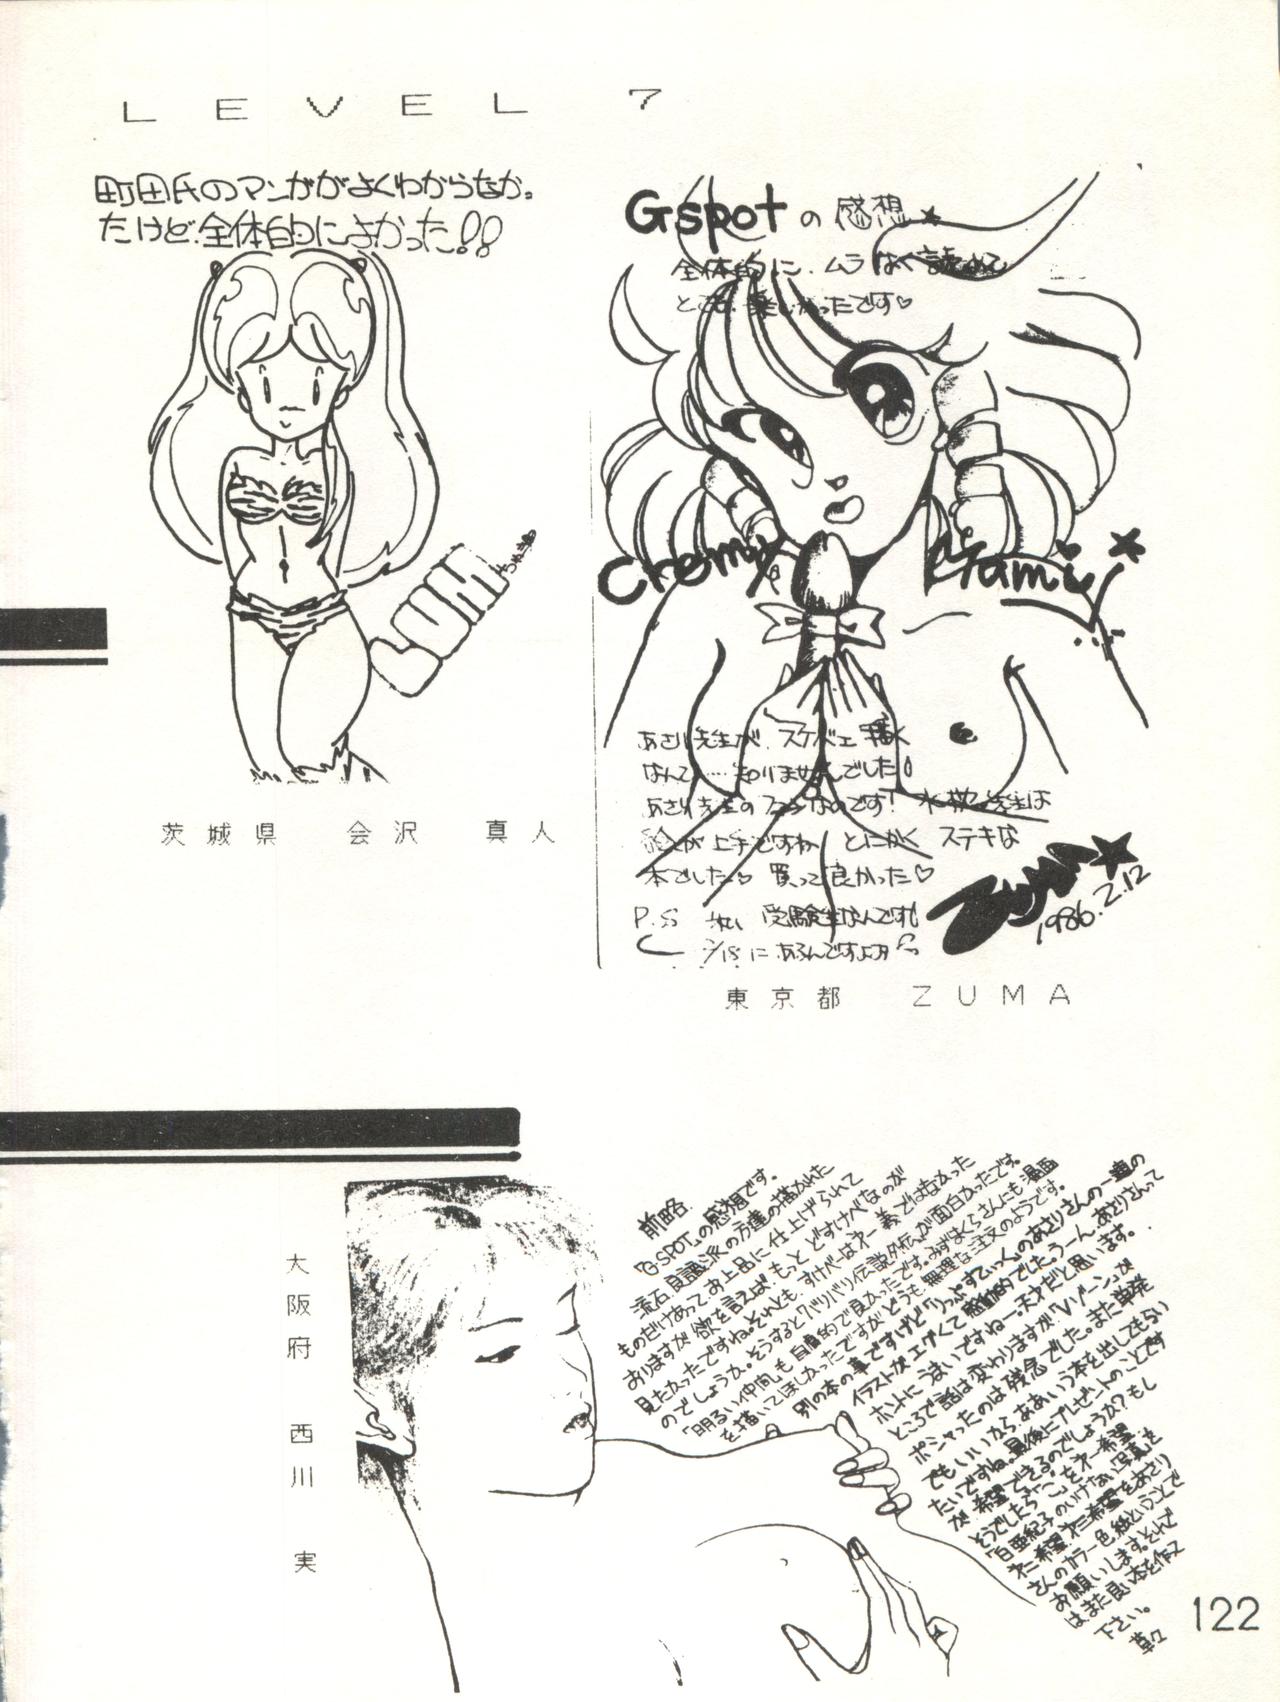 LEVEL 7
町田氏のマンガがよくわからなか。
たけど全体的によかった!!
LUM
茨城県 会沢 真人
Gspotの感想★
全体的に、ムラなく読めて
とても楽しかったです♡
Creamy Mami
あさり先生が、スケベェ描く
なんて…知りませんでした!
あさり先生のファンなのです!
絵が上手ですね とにかく ステキな
本でした♡ 買って良かった♡
P.S 私、受験生なんです!
2/18にあるんですよ
ZUMA★
1986.2.12
東京都 ZUMA
前略
「G・SPOT」の感想です。
流石良識派の方達の描かれた
ものだけあって、お上品に仕上げられて
おりますが欲を言えば、もっとどすけべなのが
見たかったですね。それとも、すけべーは才一義ではなかった
のでしょうか。そうすると「バリバリ伝説外伝」が面白かったです。
「明るい仲間」も自虐的で良かったです。みずきまくらさんにも漫画
を描いてほしかったですがどうも無理な注文のようです。
別の本の事ですけど「りっぷすてぃっく」のあさりさんの一連の
イラストがエグくて感動的でした。うーん、あさりさんって
ホントにうまいですねー天才だと思います。
ところで話は変わりますが「Vゾーン」が
ポシャったのは残念でした。また単発
でもいいから、ああいう本を出してもらい
たいですね。最後にプレゼントのことです
が希望できるのでしょうか?もし
そうでしたら「こ」を才一希望
「白亜紀子のいけない写真」を
才二希望、才三希望をあさり
さんのカラー色紙ということで
お願いします。それで
はまた良い本を作って
下さい。
草々
大阪府 西川 実
122